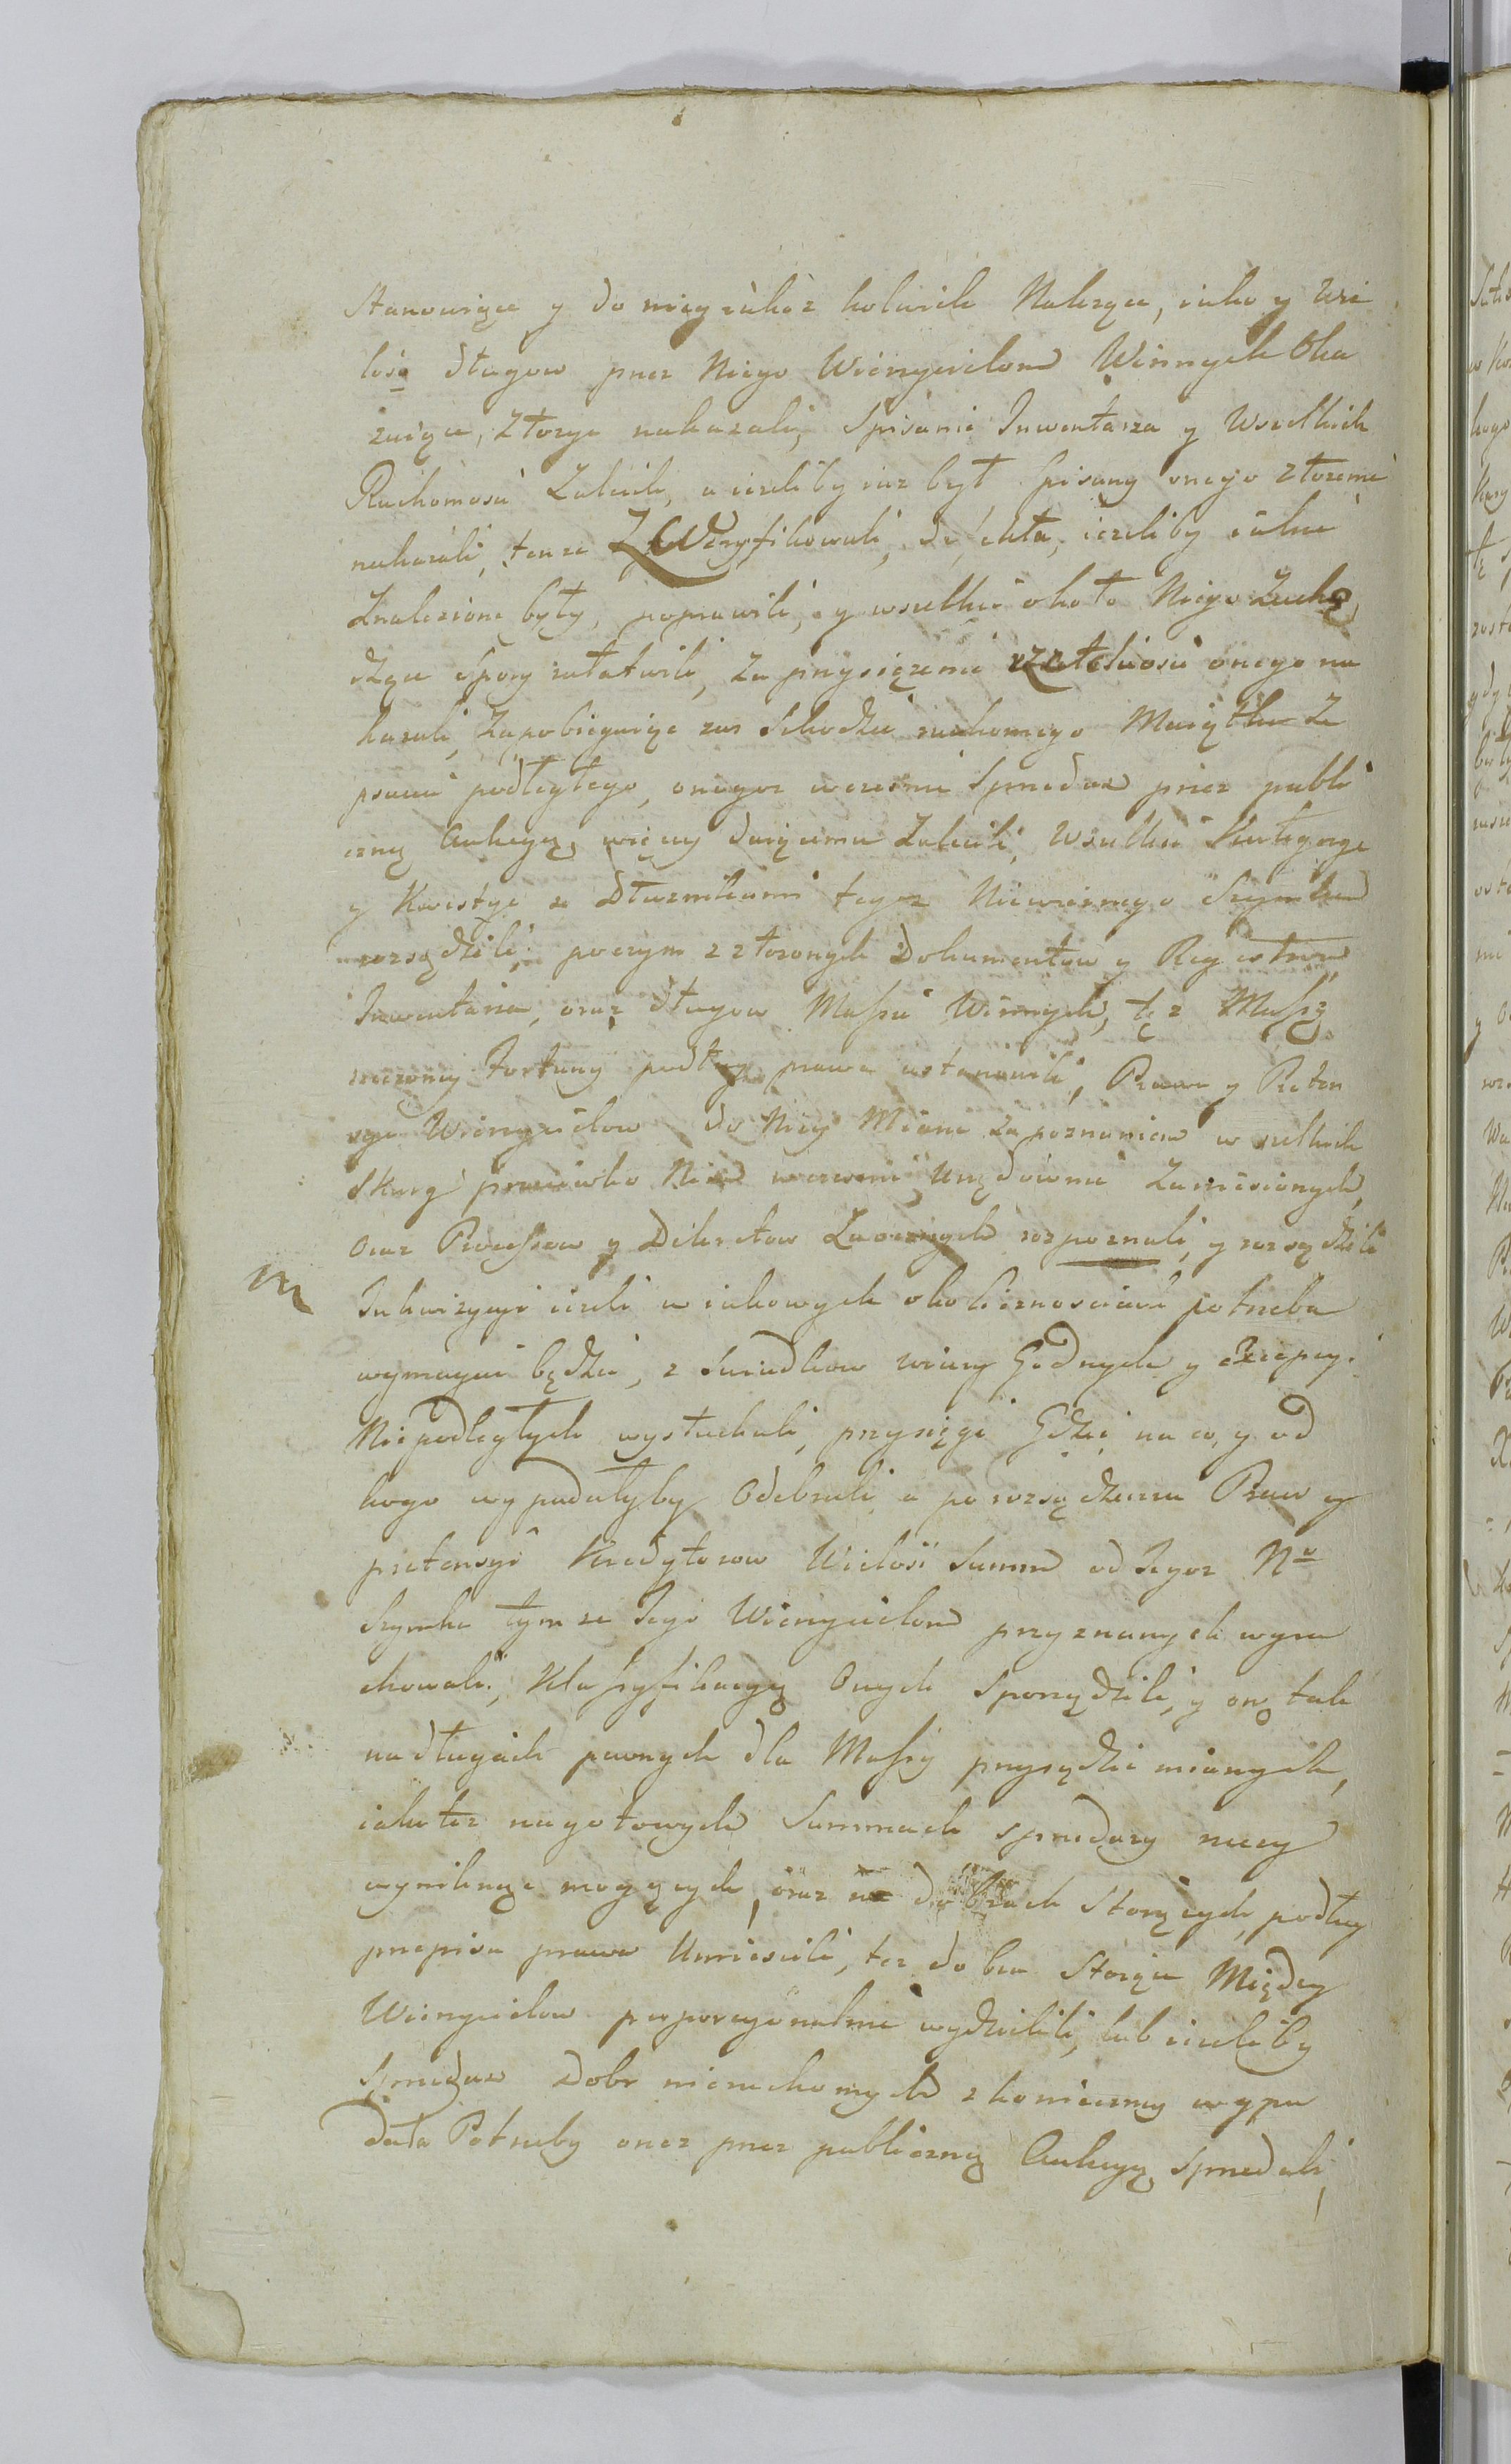 Stanowiące y do niey iakoz kolwiek Nalezące, iako y wie
lość długow przez Niego Wierzycielom Winnych Oka
zuiące, złozyc nakazali, Spisanie Inwentarza y Wszelkich
Ruchomosci Zalecili, a iezeliby iuz był spisany onego złozenie
nakazali, tenze Zweryfikowali, defekta, iezeliby iakie
Znalezione były, poprawili, y wszelkie około Niego Zacho
dzące spory załatwili, Zaprzysięzenie rzetelnosci onego na
kazali, Zapobiegaiąc zas Szkodzie ruchomego Maiątku Ze
psuciu podległego, onegoz wczesnie Sprzedaz przez publi
czną Aukcyą, więcey daiącemu Zalecili, Wszelkie
y Kwestye z Dłuznikami tegoz Niewiernego Szymka
rozsądzili, poczym z złozonych Dokumentow y Regestrow
Inwentarza, oraz długow Massie Winnych, tęz Massę
rzeczoney Fortuny podług prawa ustanowili, Prawa y Preten
sye Wierzycielow do Niey Miane za poznaniem wszelkich
Skarg przeciwko Niemu wczesnie Urzędownie Zaniesionych,
Oraz Processow y Dekretow Zaocznych rozpoznali, y rozsądzili
m Inkwizycye iezeli w iakowych okolicznosciach potrzeba
wymagac będzie, z Swiadkow wiary Godnych y Excepcyi
Niepodległych wysłuchali, przysięgi Gdzie na co, y od
kogo wypadałyby Odebrali a po rozsądzeniu Praw y
pretensyi Kredytorow Wielosc Summ od Tegoz Nᵒ
Szymka tymze Jego Wierzycielom przyznanych wyra
chowali, Klassyfikacyą Onych Sporządzili, y oną tak
na długach pewnych dla Massy przysądzic mianych,
iako tez na gotowych Summach z przedazy rzeczy
wyniknąc mogących, oraz na dobrach Stoiących, podług
przepisu prawa Umiescili, tez dobra Stoiące Między
Wierzycielow proporcyonalnie wydzielili, lub iezeliby
Sprzedaz Dobr nieruchomych z konieczney wypa
dała Potrzeby onez przez publiczną Aukcyą Sprzedali,